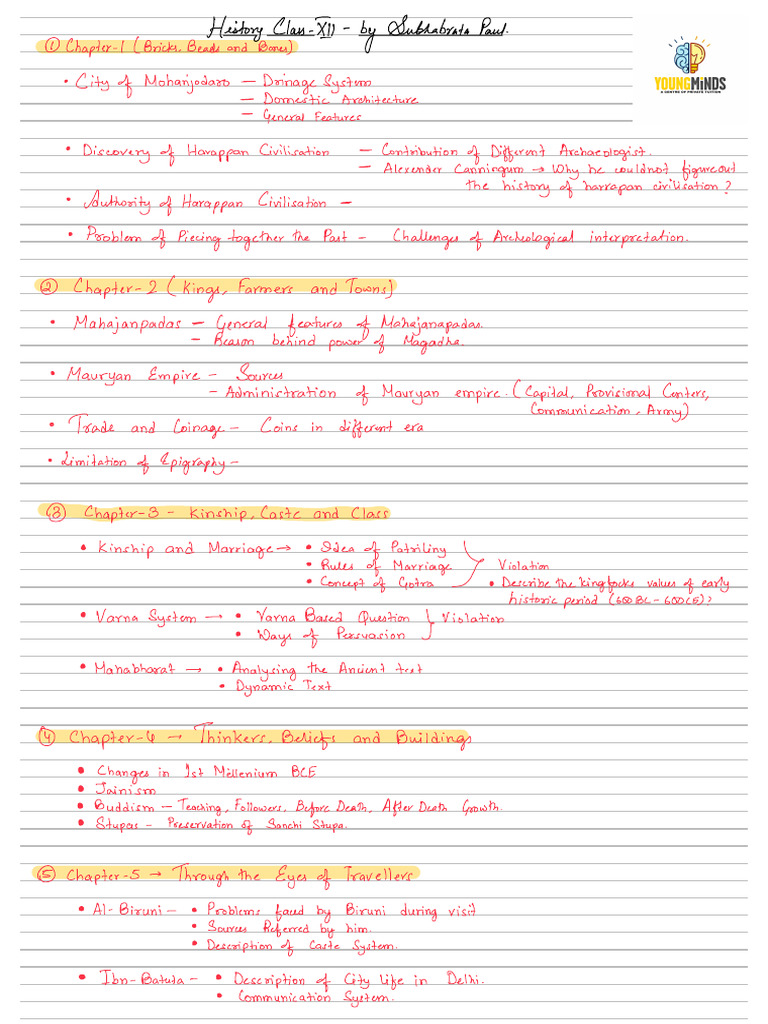 History Class-XII - by Subhabrata Paul.
① Chapter-1 (Bricks, Beads and Bones)
YOUNGMiNDS
A CENTRE OF PRIVATE TUITION
• City of Mohanjodaro — Drinage System
— Domestic Architecture
— General Features
• Discovery of Harappan Civilisation — Contribution of Different Archaeologist.
— Alexender Canningum → Why he couldnot figureout
the history of harrapan civilisation?
• Authority of Harappan Civilisation —
• Problem of Piecing together the Past — Challenges of Archeological interpretation.
② Chapter-2 (Kings, Farmers and Towns)
• Mahajanpadas — General features of Mahajanapadas.
— Reason behind power of Magadha.
• Mauryan Empire — Sources
— Administration of Mauryan empire. (Capital, Provisional Centers,
Communication, Army)
• Trade and Coinage — Coins in different era
• Limitation of Epigraphy —
③ Chapter-3 - Kinship, Caste and Class
• Kinship and Marriage → • Idea of Patriliny
• Rules of Marriage
• Concept of Gotra
Violation
• Describe the kingfocks values of early
historic period (600 BC — 600 CE)?
• Varna System → • Varna Based Question
• Ways of Persuasion
Violation
• Mahabharat → • Analysing the Ancient text
• Dynamic Text
④ Chapter-4 → Thinkers, Beliefs and Buildings
• Changes in 1st Millenium BCE
• Jainism
• Buddism — Teaching, Followers, Before Death, After Death Growth.
• Stupas — Preservation of Sanchi Stupa.
⑤ Chapter-5 → Through the Eyes of Travellers
• Al-Biruni — • Problems faced by Biruni during visit
• Sources Referred by him.
• Description of Caste System.
• Ibn-Batuta — • Description of City life in Delhi.
• Communication System.